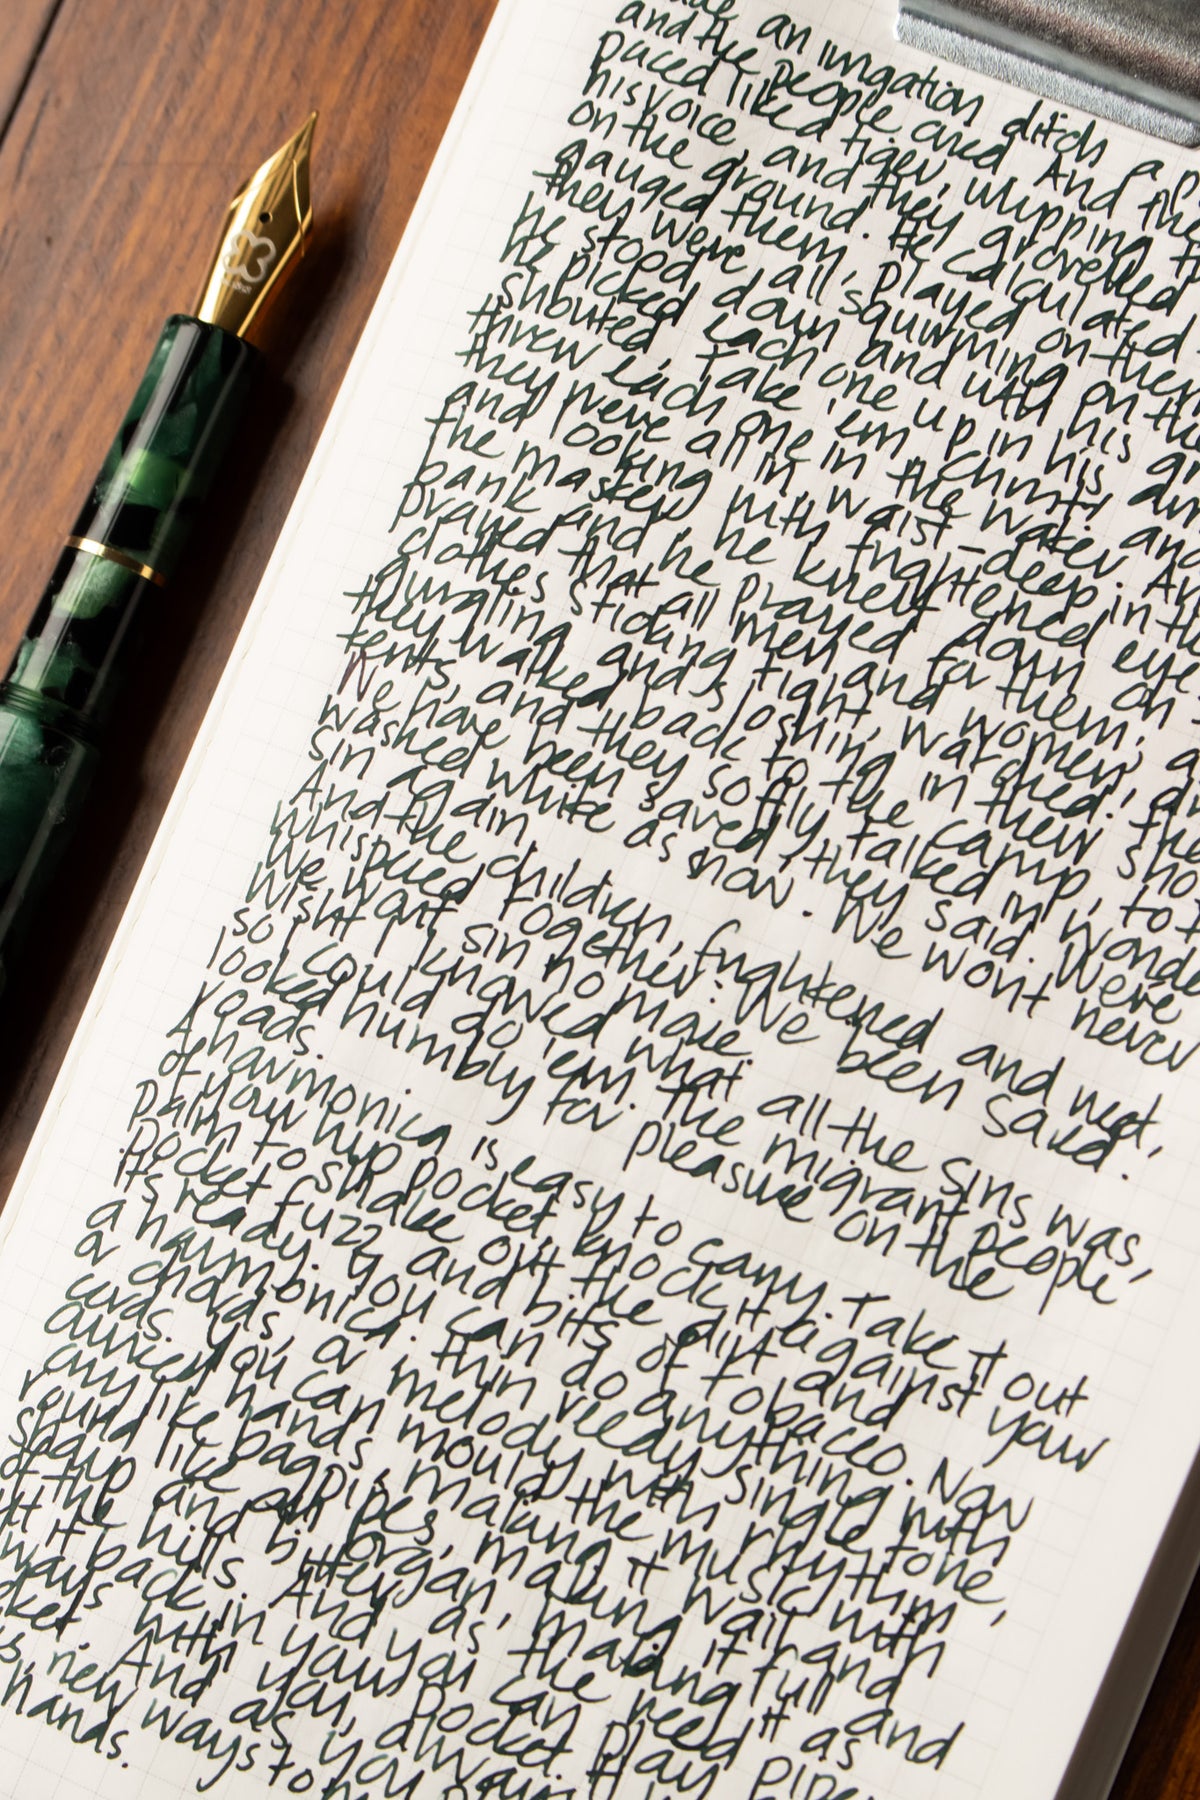 ade an irrigation ditch a p
and the people cried. And the
paced like a tiger, whipping th
his voice, and they grovelled
on the ground. He calculated
gauged them, played on them
they were all squirming on the
he stooped down and with his gr
he picked each one up in his arm
shouted, Take 'em, Christ! and
threw each one in the water. An
they were all in, waist-deep in th
and looking with frightened eye
the master, he knelt down on
bank and he prayed for them; a
prayed that all men and women, a
clothes sticking tight, watched; the
gurgling and sloshing in their sho
they walked back to the camp, to t
tents, and they softly talked in wonde
We have been saved, they said. We're
washed white as snow. We wont never
sin again.
And the children, frightened and wet,
whispered together: We been saved.
We wont sin no more.
Wisht I knowed what all the sins was,
so I could do 'em. The migrant people
looked humbly for pleasure on the
roads.
A harmonica is easy to carry. Take it out
of your hip pocket, knock it against your
palm to shake out the dirt and
pocket fuzz and bits of tobacco. Now
its ready. You can do anything with
a harmonica: thin reedy single tone,
or chords, or melody with rhythm
cords. You can mould the music with
curved hands, making it wail and
cry like bagpipes, making it full and
round like an organ, making it as
sharp and bitter as the reed pipe
of the hills. And you can play
it back in your pocket.
ways with you, always
cket. And as you play
s, new ways to
hands.